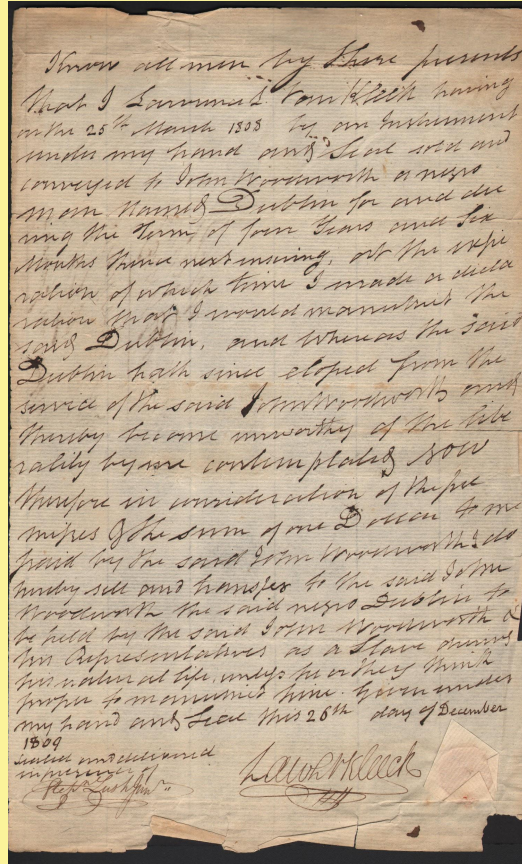 Know all men by these presents
that I Lawrence L Van Kleeck having
on the 25th March 1808 by an Instrument
under my hand and Seal sold and
conveyed to John Woodworth a negro
man named Dublin for and du
ring the term of four Years and Six
Months thence next ensuing, at the expi
ration of which time I made a decla
ration that I would manumit the
said Dublin, and whereas the said
Dublin hath since eloped from the
service of the said John Woodworth and
thereby become unworthy of the libe
rality by me contemplated Now
therefore in consideration of the pre
mises & the sum of one Dollar to me
paid by the said John Woodworth I do
hereby sell and transfer to the said John
Woodworth the said negro Dublin to
be held by the said John Woodworth &
his Representatives as a Slave during
his natural life, unless he or they think
proper to manumit him. Given under
my hand and Seal this 26th day of December
1809
sealed and delivered
in presence of
Lush Junr.
Law L V Kleeck